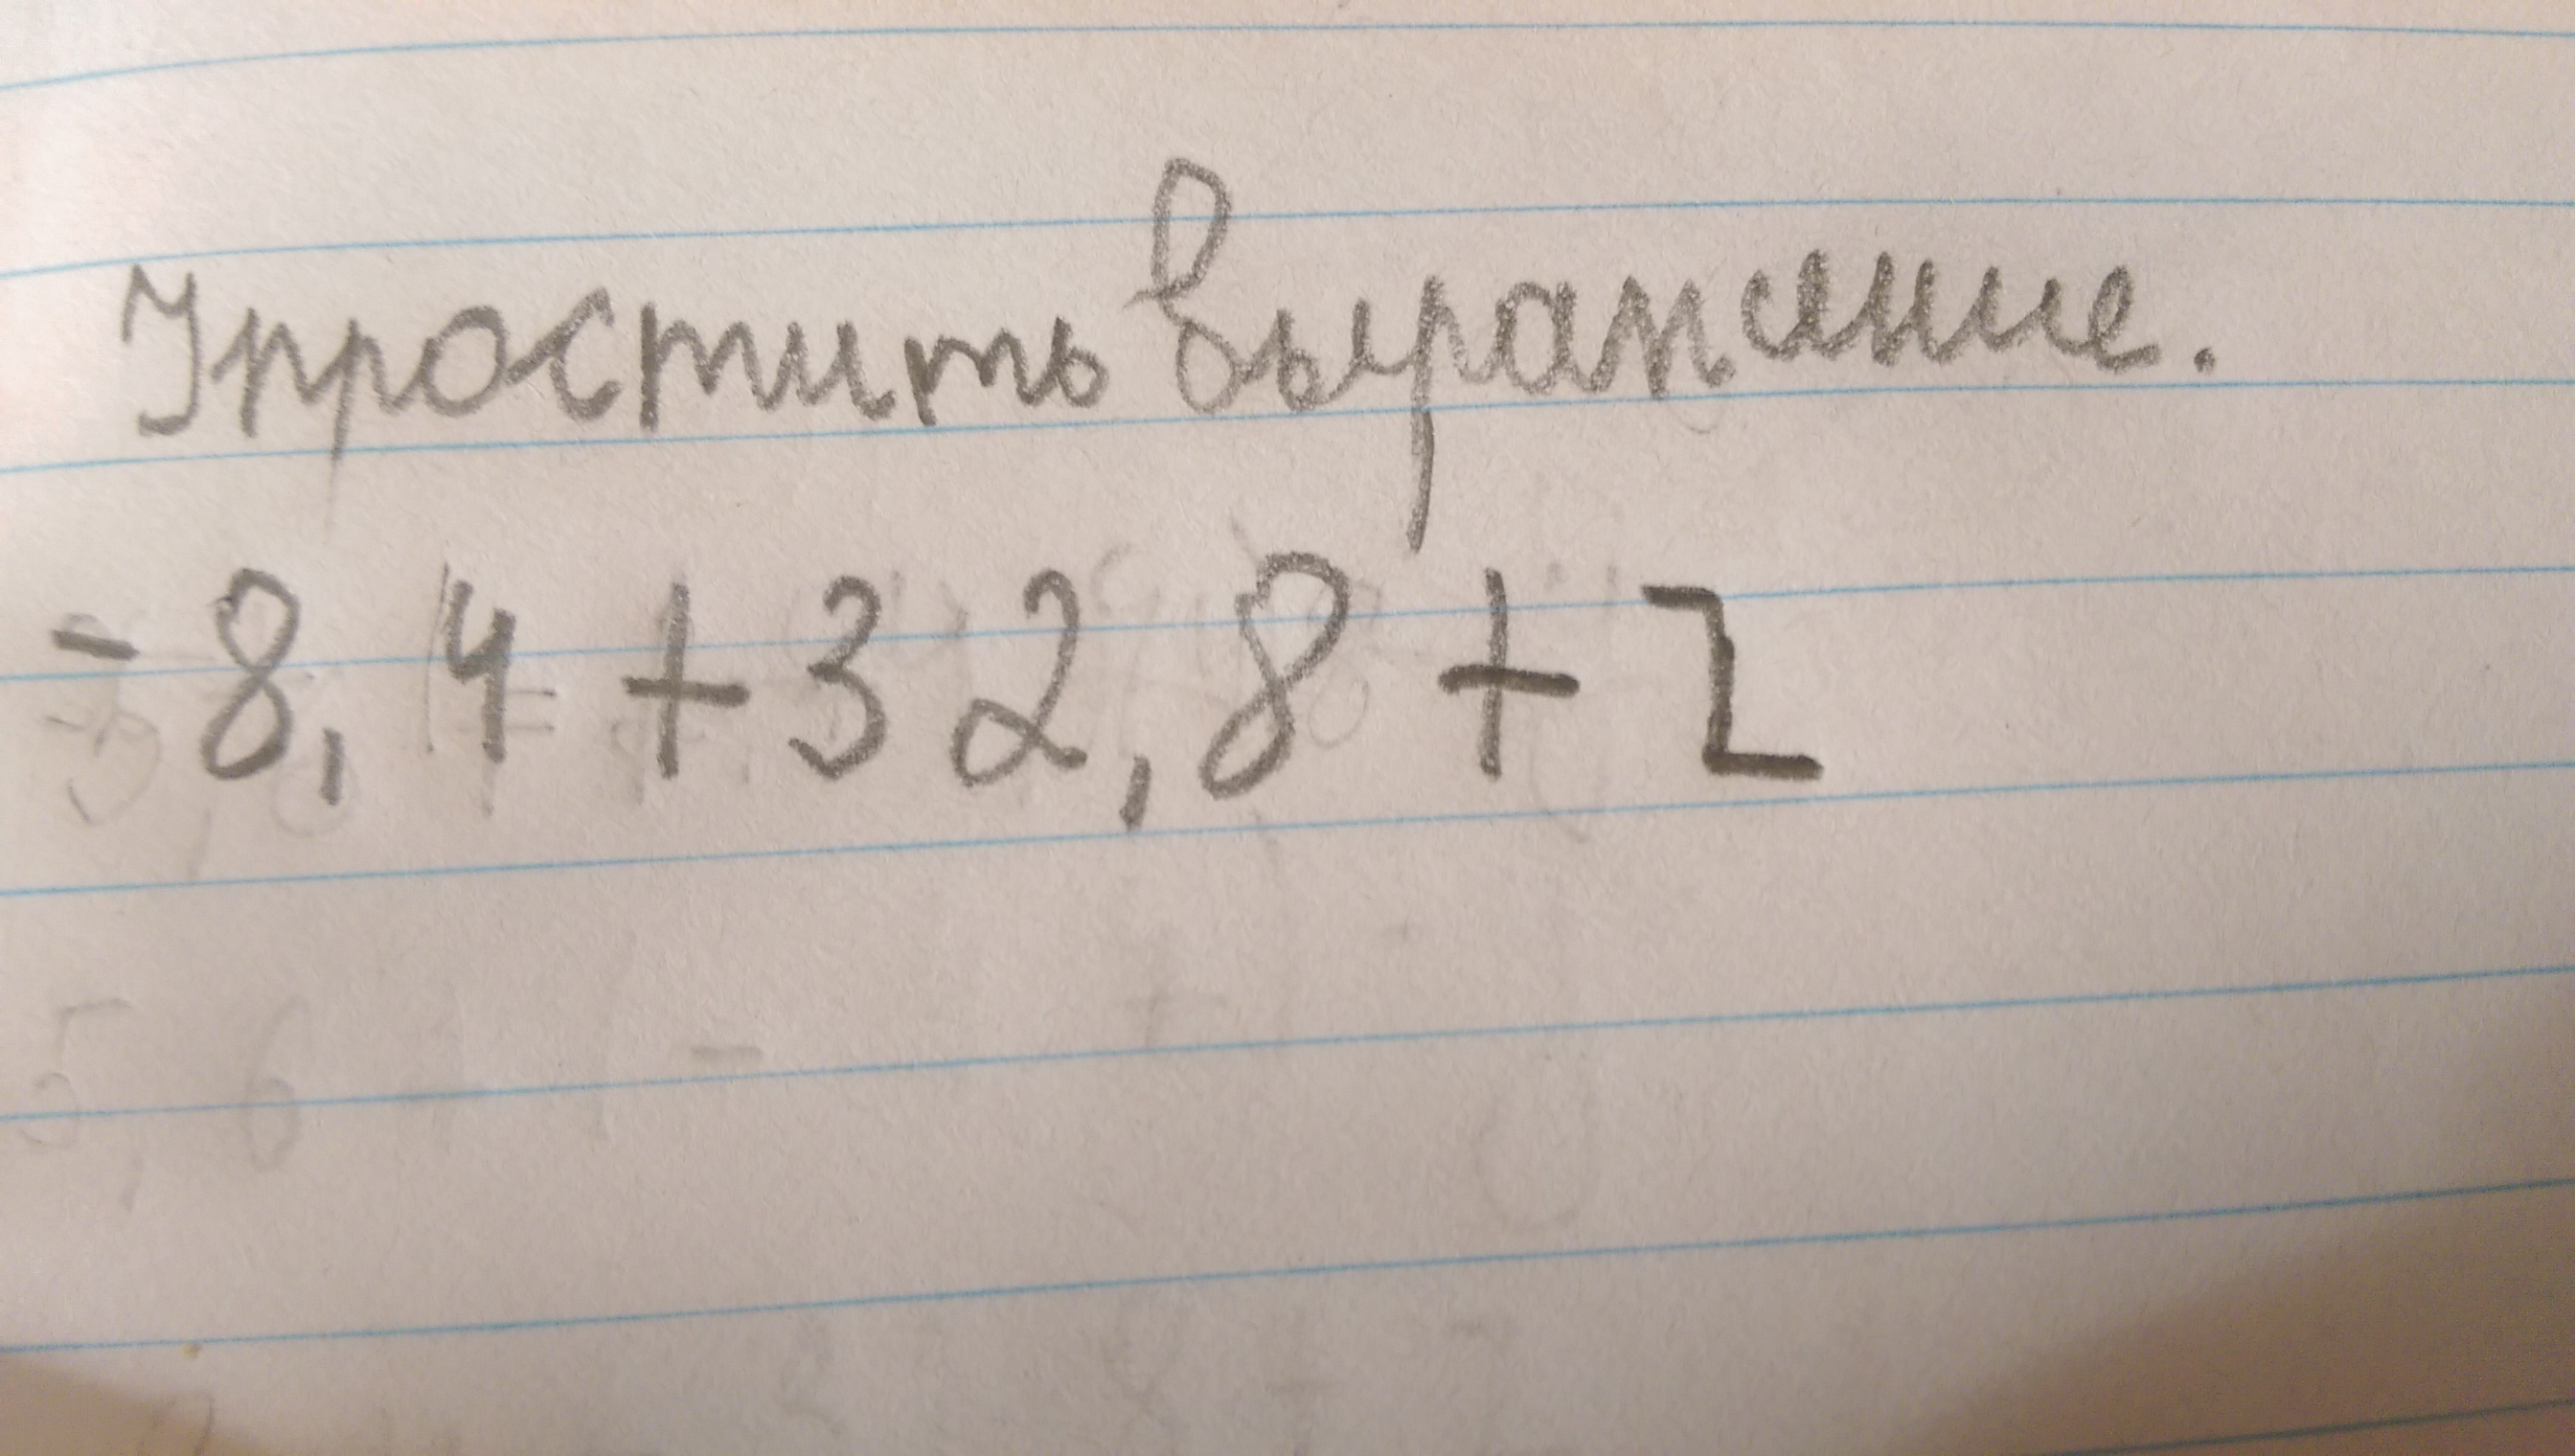 Упростить выражение.
-8,4+32,8+z